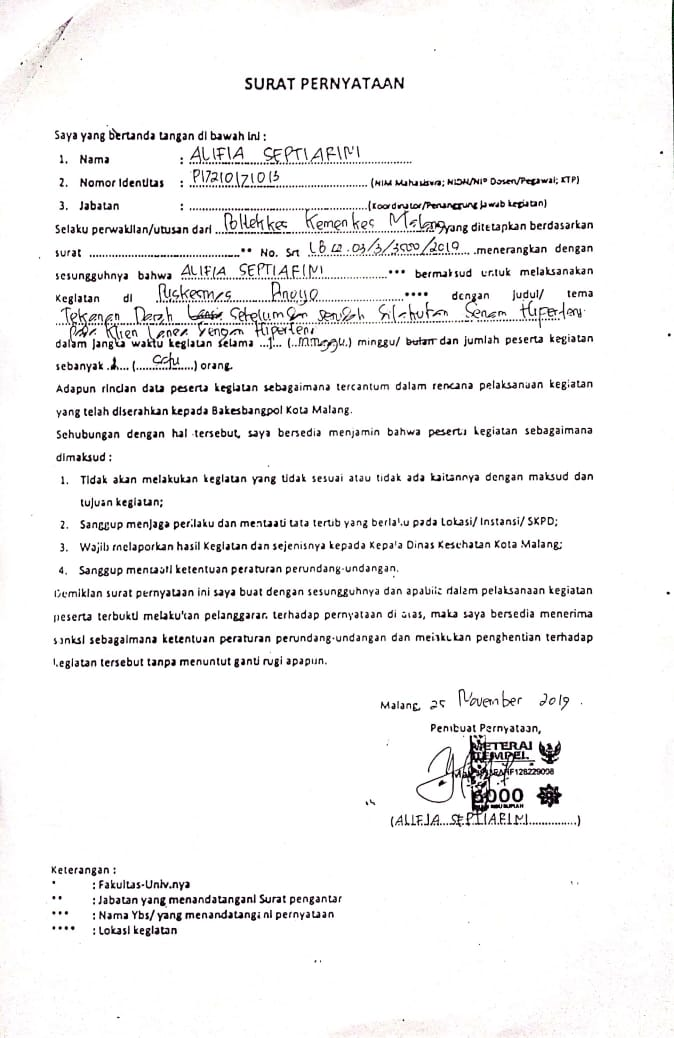 SURAT PERNYATAAN
Saya yang bertanda tangan di bawah ini :
1. Nama : ALIFIA SEPTIARINI
2. Nomor Identitas : P17210171013 (NIM Mahasiswa; NIDN/NIP Dosen/Pegawai; KTP)
3. Jabatan : (Koordinator/Penanggung jawab kegiatan)
Selaku perwakilan/utusan dari Poltekkes Kemenkes Malang yang ditetapkan berdasarkan
surat ** No. Srt LB 02.03/3/3500/2019 menerangkan dengan
sesungguhnya bahwa ALIFIA SEPTIARINI *** bermaksud untuk melaksanakan
Kegiatan di Puskesmas **** dengan judul/ tema
Tekanan Darah Sebelum Sesudah Senam Hipertensi
Pada Klien Lansia Dengan Hipertensi
dalam jangka waktu kegiatan selama ...1... (..minggu.) minggu/ bulan dan jumlah peserta kegiatan
sebanyak .1.... (......satu........) orang.
Adapun rincian data peserta kegiatan sebagaimana tercantum dalam rencana pelaksanaan kegiatan
yang telah diserahkan kepada Bakesbangpol Kota Malang.
Sehubungan dengan hal tersebut, saya bersedia menjamin bahwa peserta kegiatan sebagaimana
dimaksud :
1. Tidak akan melakukan kegiatan yang tidak sesuai atau tidak ada kaitannya dengan maksud dan
tujuan kegiatan;
2. Sanggup menjaga perilaku dan mentaati tata tertib yang berlaku pada Lokasi/ Instansi/ SKPD;
3. Wajib melaporkan hasil Kegiatan dan sejenisnya kepada Kepala Dinas Kesehatan Kota Malang;
4. Sanggup mentaati ketentuan peraturan perundang-undangan.
Demikian surat pernyataan ini saya buat dengan sesungguhnya dan apabila dalam pelaksanaan kegiatan
peserta terbukti melakukan pelanggaran terhadap pernyataan di atas, maka saya bersedia menerima
sanksi sebagaimana ketentuan peraturan perundang-undangan dan melakukan penghentian terhadap
kegiatan tersebut tanpa menuntut ganti rugi apapun.
Malang, 25 November 2019 .
Pembuat Pernyataan,
METERAI
TEMPEL
F128229098
6000
(ALIFIA SEPTIARINI)
Keterangan :
* : Fakultas-Univ.nya
** : Jabatan yang menandatangani Surat pengantar
*** : Nama Ybs/ yang menandatangani pernyataan
**** : Lokasi kegiatan